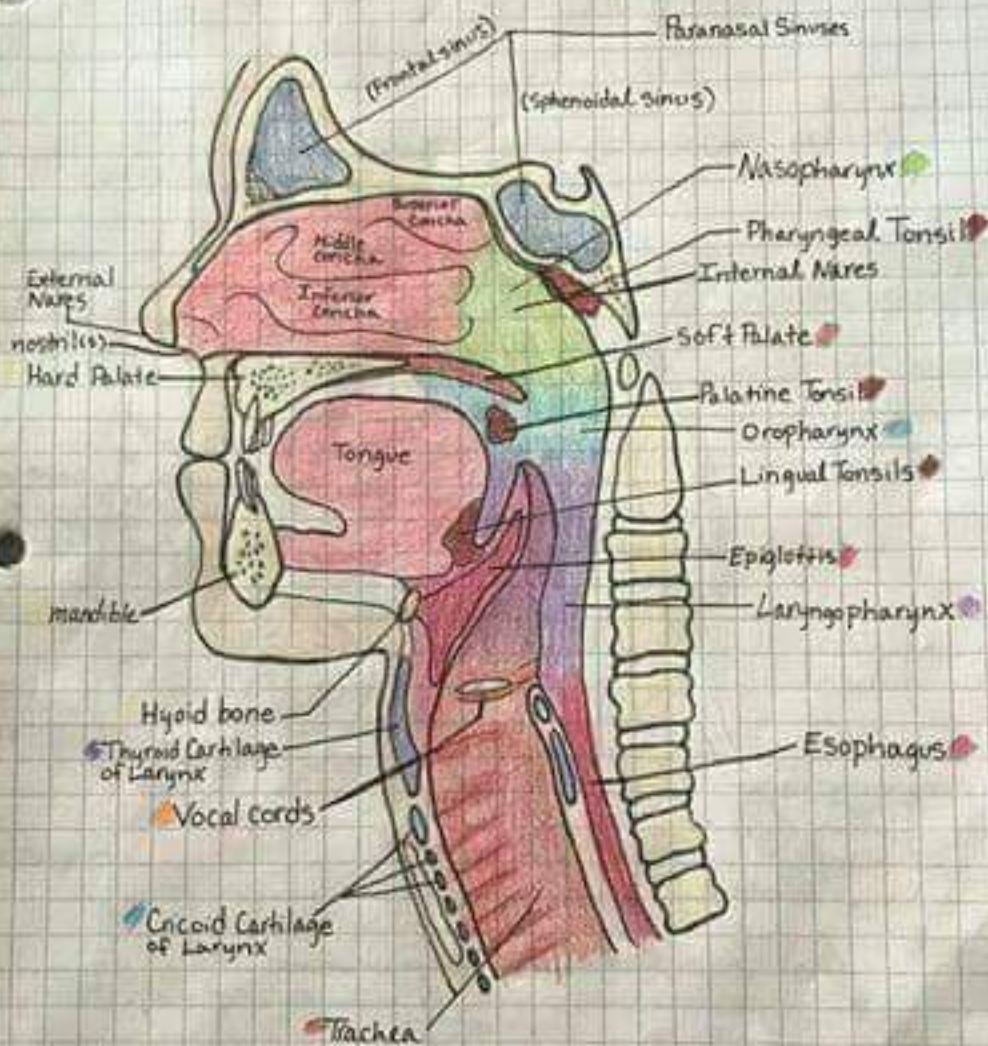 Paranasal Sinuses
(Frontal sinus)
(Sphenoidal sinus)
Nasopharynx
Pharyngeal Tonsil
Internal Nares
Soft Palate
Palatine Tonsil
Oropharynx
Lingual Tonsils
Epiglottis
Laryngopharynx
Esophagus
Superior
Concha
Middle
Concha
Inferior
Concha
Tongue
External
Nares
nostril(s)
Hard Palate
mandible
Hyoid bone
Thyroid Cartilage
of Larynx
Vocal cords
Cricoid Cartilage
of Larynx
Trachea